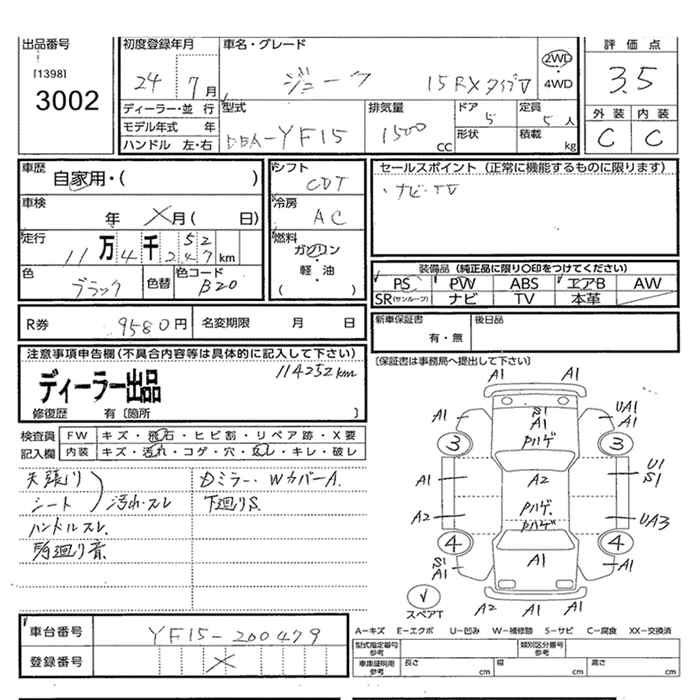 出品番号
[1398]
3002
初度登録年月
24 7月
車名・グレード
ジューク 15RXタイプV
2WD
・
4WD
評価点
3.5
外装 内装
C C
ディーラー・並行
モデル年式 年
ハンドル 左・右
型式
DBA-YF15
排気量
1500 CC
ドア
5
形状
定員
5人
積載 kg
車歴
自家用・( )
車検
年 X月( 日)
走行
11万4千252
247km
色
ブラック
色替
色コード
B20
シフト
CVT
冷房
AC
燃料
ガソリン
・
軽・油
( )
セールスポイント (正常に機能するものに限ります)
・ナビ・TV
装備品 (純正品に限り○印をつけてください)
PS PW ABS エアB AW
SR(サンルーフ) ナビ TV 本革
R券 9580円 名変期限 月 日
新車保証書
有・無
後日品
注意事項申告欄(不具合内容等は具体的に記入して下さい)
114252km
ディーラー出品
修復歴 有〔箇所 〕
〔保証書は事務局へ提出して下さい〕
検査員
記入欄
FW キズ・飛石・ヒビ割・リペア跡・X要
内装 キズ・汚れ・コゲ・穴・スレ・キレ・破レ
天張り
シート
汚れ・スレ
ハンドルスレ
Dミラー・WカバーA.
下廻りS.
A1 A1
A1 S1 A1 UA1 A1
Pハゲ
3 3
A1 A2 U1 S1
A2 Pハゲ Pハゲ UA3
4 4
S1 A1 A1 A1
スペアT
A2 A1 A1
車台番号 YF15-200479
登録番号 X
A-キズ E-エクボ U-凹み W-補修跡 S-サビ C-腐食 XX-交換済
型式指定番号
参考
類別区分番号
参考
車庫証明用
参考
長さ cm
幅 cm
高さ cm